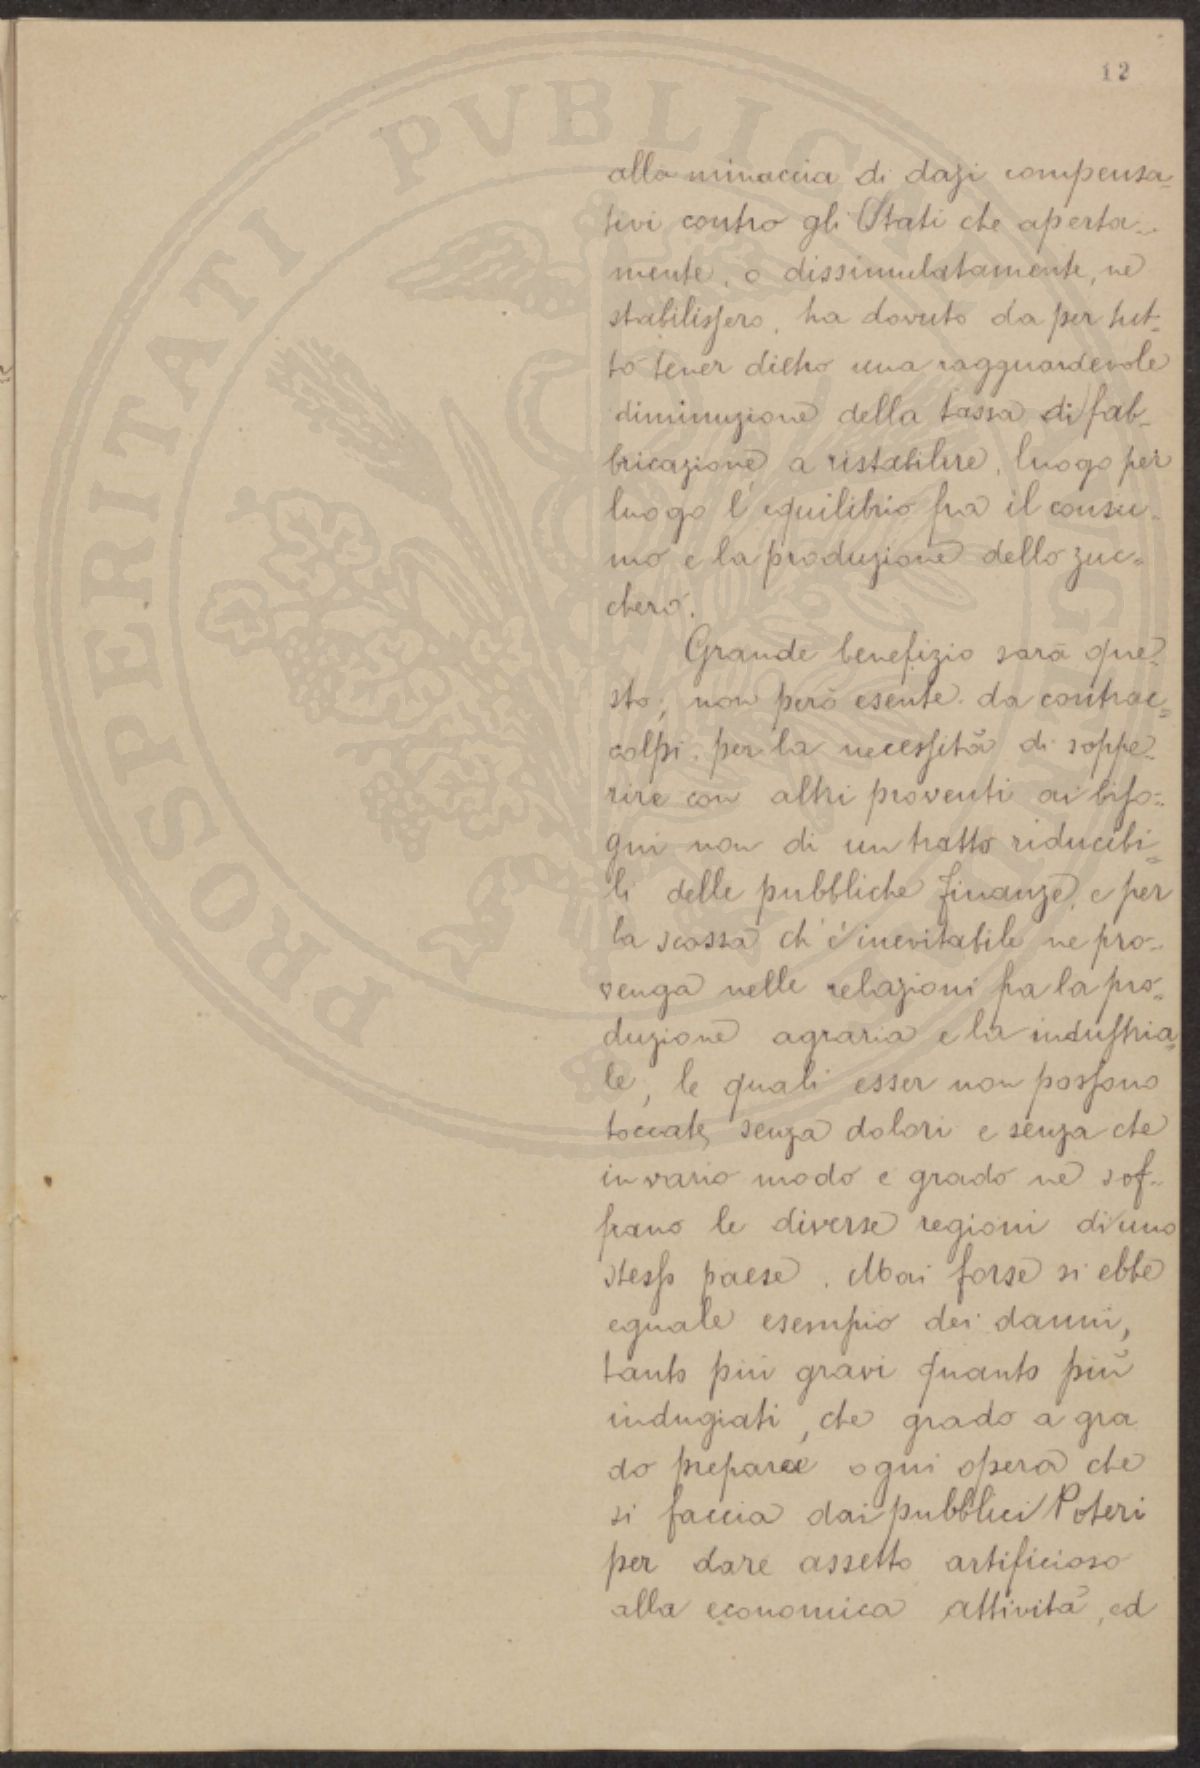 12
alla minaccia di dazi compensa=
tivi contro gli Stati che aperta=
mente, o dissimulatamente, ne
stabilissero, ha dovuto da per tut=
to tener dietro una ragguardevole
diminuzione della tassa di fab=
bricazione, a ristabilire, luogo per
luogo l'equilibrio fra il consu=
mo e la produzione dello zuc=
chero.
Grande benefizio sarà que=
sto, non però esente da contrac=
colpi, per la necessità di soppe=
rire con altri proventi ai biso=
gni non di un tratto riducibi=
li delle pubbliche finanze, e per
la scossa ch'è inevitabile ne pro=
venga nelle relazioni fra la pro=
duzione agraria e la industria=
le, le quali esser non possono
toccate senza dolori e senza che
in vario modo e grado ne sof=
frano le diverse regioni di uno
stesso paese. Mai forse si ebbe
eguale esempio dei danni,
tanto più gravi quanto più
indugiati, che grado a gra
do prepara ogni opera che
si faccia dai pubblici Poteri
per dare assetto artificioso
alla economica attività, ed
PROSPERITATI PVBLICAE